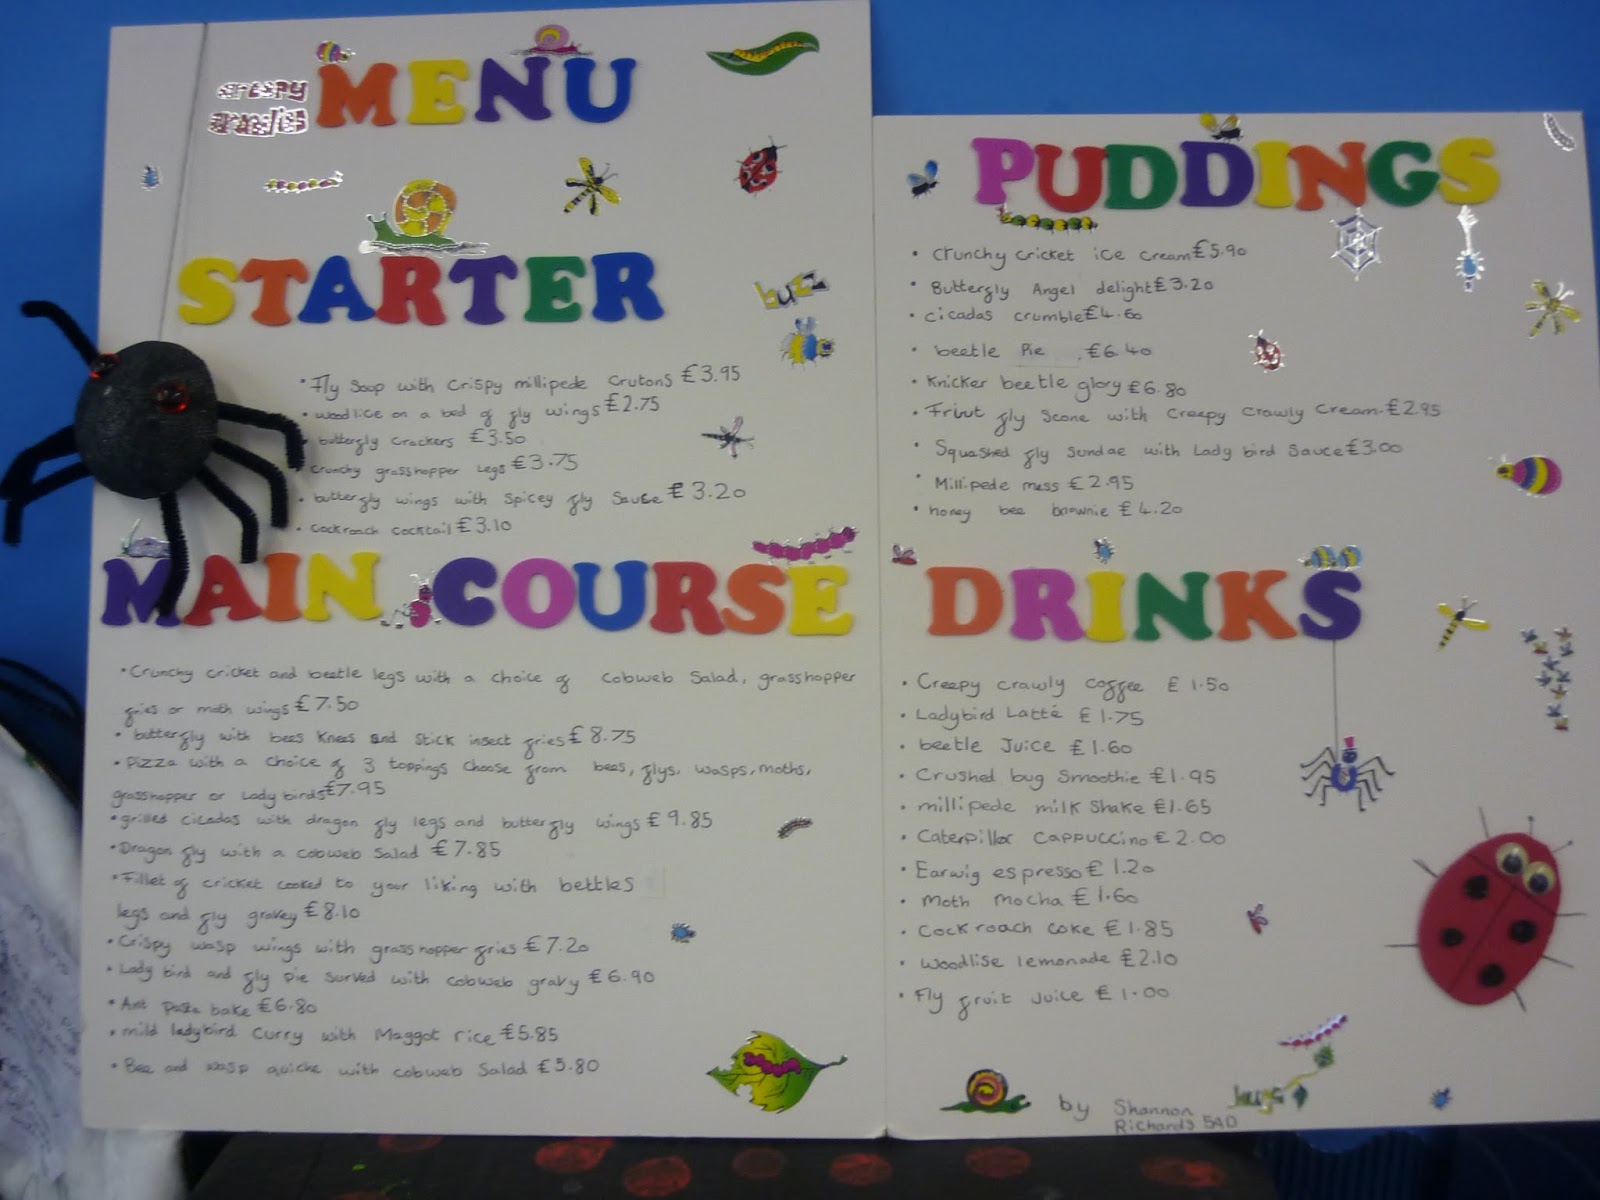 creepy crawlies
MENU
STARTER
• Fly Soup with crispy millipede crutons £3.95
• woodlice on a bed of fly wings £2.75
• butterfly crackers £3.50
• crunchy grasshopper legs £3.75
• butterfly wings with spicey fly sauce £3.20
• cockroach cocktail £3.10
MAIN COURSE
• Crunchy cricket and beetle legs with a choice of cobweb salad, grasshopper
fries or moth wings £7.50
• butterfly with bees knees and stick insect fries £8.75
• Pizza with a choice of 3 toppings choose from bees, flys, wasps, moths,
grasshopper or Lady birds £7.95
• grilled cicadas with dragon fly legs and butterfly wings £9.85
• Dragon fly with a cobweb salad £7.85
• Fillet of cricket cooked to your liking with bettles
legs and fly gravey £8.10
• Crispy wasp wings with grasshopper fries £7.20
• Lady bird and fly pie surved with cobweb gravy £6.90
• Ant Pasta bake £6.80
• mild ladybird curry with Maggot rice £5.85
• Bee and wasp quiche with cobweb salad £5.80
buzz
PUDDINGS
• crunchy cricket ice cream £5.90
• Butterfly Angel delight £3.20
• cicadas crumble £4.60
• beetle Pie £6.40
• Knicker beetle glory £6.80
• Friut fly scone with creepy crawly cream £2.95
• Squashed fly sundae with Lady bird sauce £3.00
• Millipede mess £2.95
• honey bee brownie £4.20
DRINKS
• Creepy crawly coffee £1.50
• Ladybird Latté £1.75
• beetle Juice £1.60
• Crushed bug smoothie £1.95
• millipede milk shake £1.65
• Caterpillar cappuccino £2.00
• Earwig espresso £1.20
• Moth mocha £1.60
• Cockroach coke £1.85
• woodlise lemonade £2.10
• Fly fruit juice £1.00
bugs
by Shannon
Richards 5AD